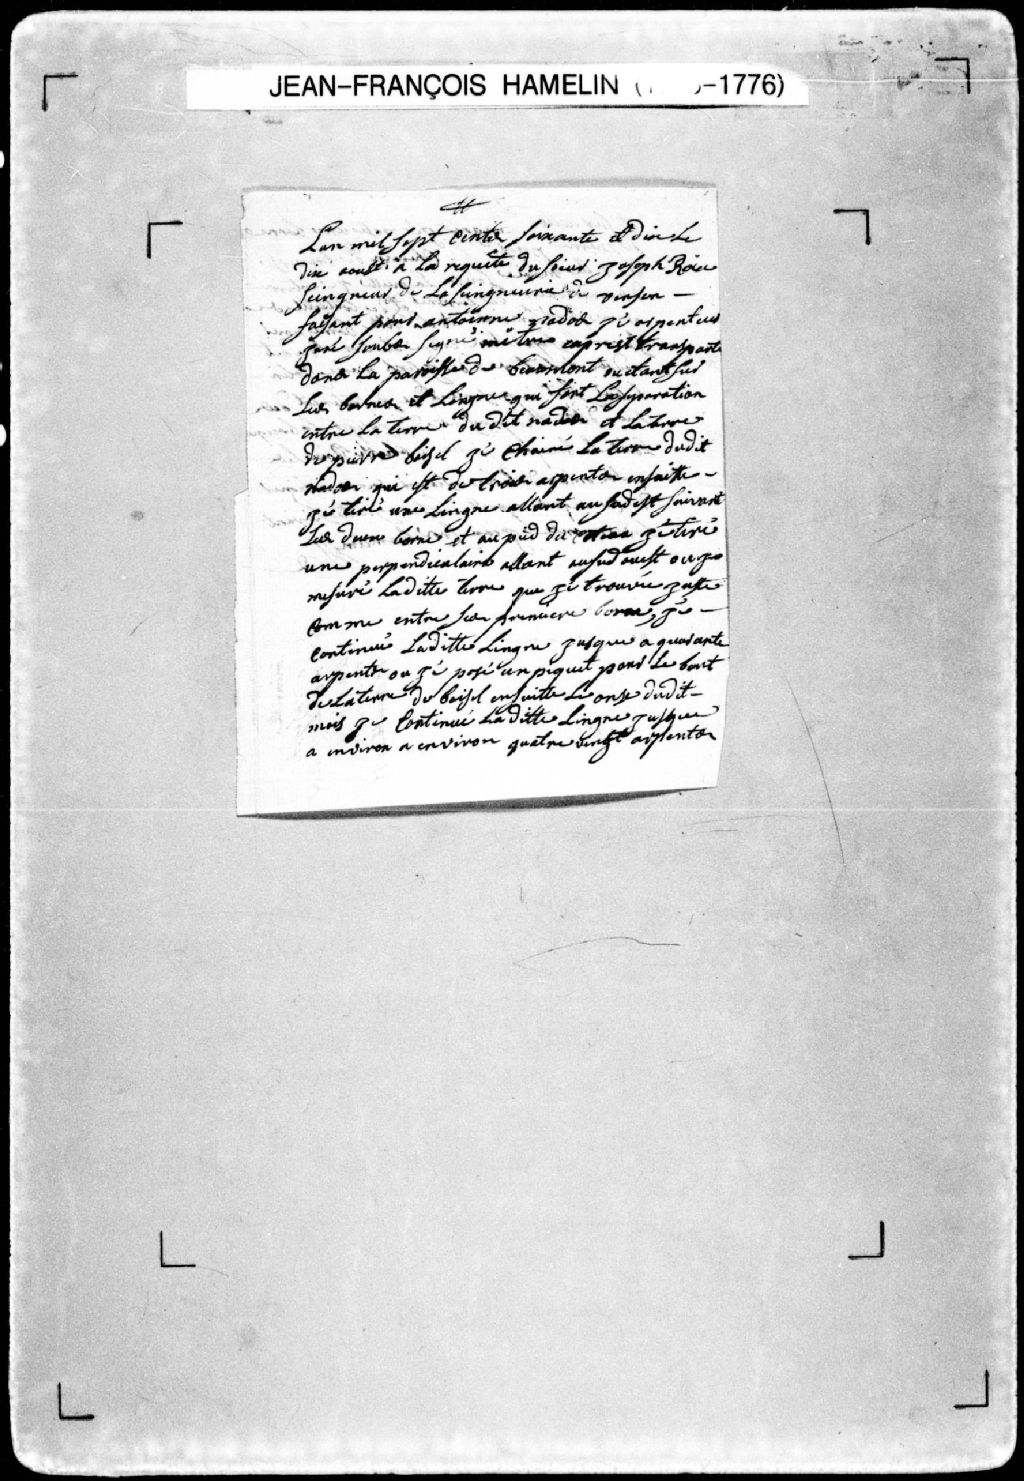 JEAN-FRANÇOIS HAMELIN ( -1776)
Lan mil sept cents soixante et dix Le
dix aoust a La requête du sieur zoseph Roie
seingneur de La seingneurie de vensen —
faisant pour antoinne nados zé arpenteur
zuré soubs signé transporté
dans La paroisse de beaumont ou étant sur
Les bornes et Lingne qui font La separation
entre La terre du dit nados et La terre
de pierre beisel zé Chainé La terre dudit
nados qui est de trois arpents ensuitte —
zé tiré une Lingne allant au sud est suivant
Les deux borne et au pied du zé tiré
une perpendiculaire allant au sud ouest ou ze
mesuré Laditte terre que zé trouvée zuste
comme entre ses premiere borne, zé —
Continué Laditte Lingne zusque a quarante
arpents ou zé posé un piquet pour Le bout
de La terre de beisel ensuitte Le onze dudit —
mois zé Continué La ditte Lingne zusque
a environ a environ quatre vingt arpents